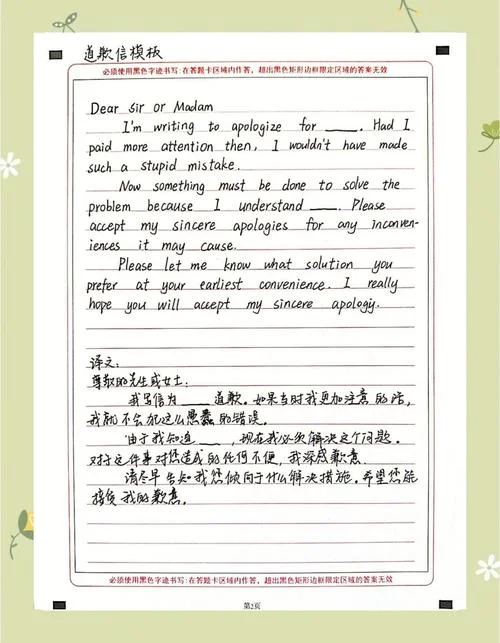 道歉信模板
必须使用黑色字迹书写:在答题卡区域内作答，超出黑色矩形边框限定区域的答案无效
Dear Sir or Madam
I'm writing to apologize for ____. Had I
paid more attention then, I wouldn't have made
such a stupid mistake.
Now something must be done to solve the
problem because I understand ____. Please
accept my sincere apologies for any inconven-
iences it may cause.
Please let me know what solution you
prefer at your earliest convenience. I really
hope you will accept my sincere apology.
译文:
尊敬的先生或女士:
我写信为____道歉。如果当时我更加注意的话，
我就不会犯这么愚蠢的错误。
由于我知道____，现在我必须解决这个问题。
对于这件事对您造成的任何不便，我深感歉意.
请尽早告知我您倾向于什么解决措施。希望您能
接受我的歉意。
必须使用黑色字迹书写:在答题卡区域内作答，超出黑色矩形边框限定区域的答案无效
第2页